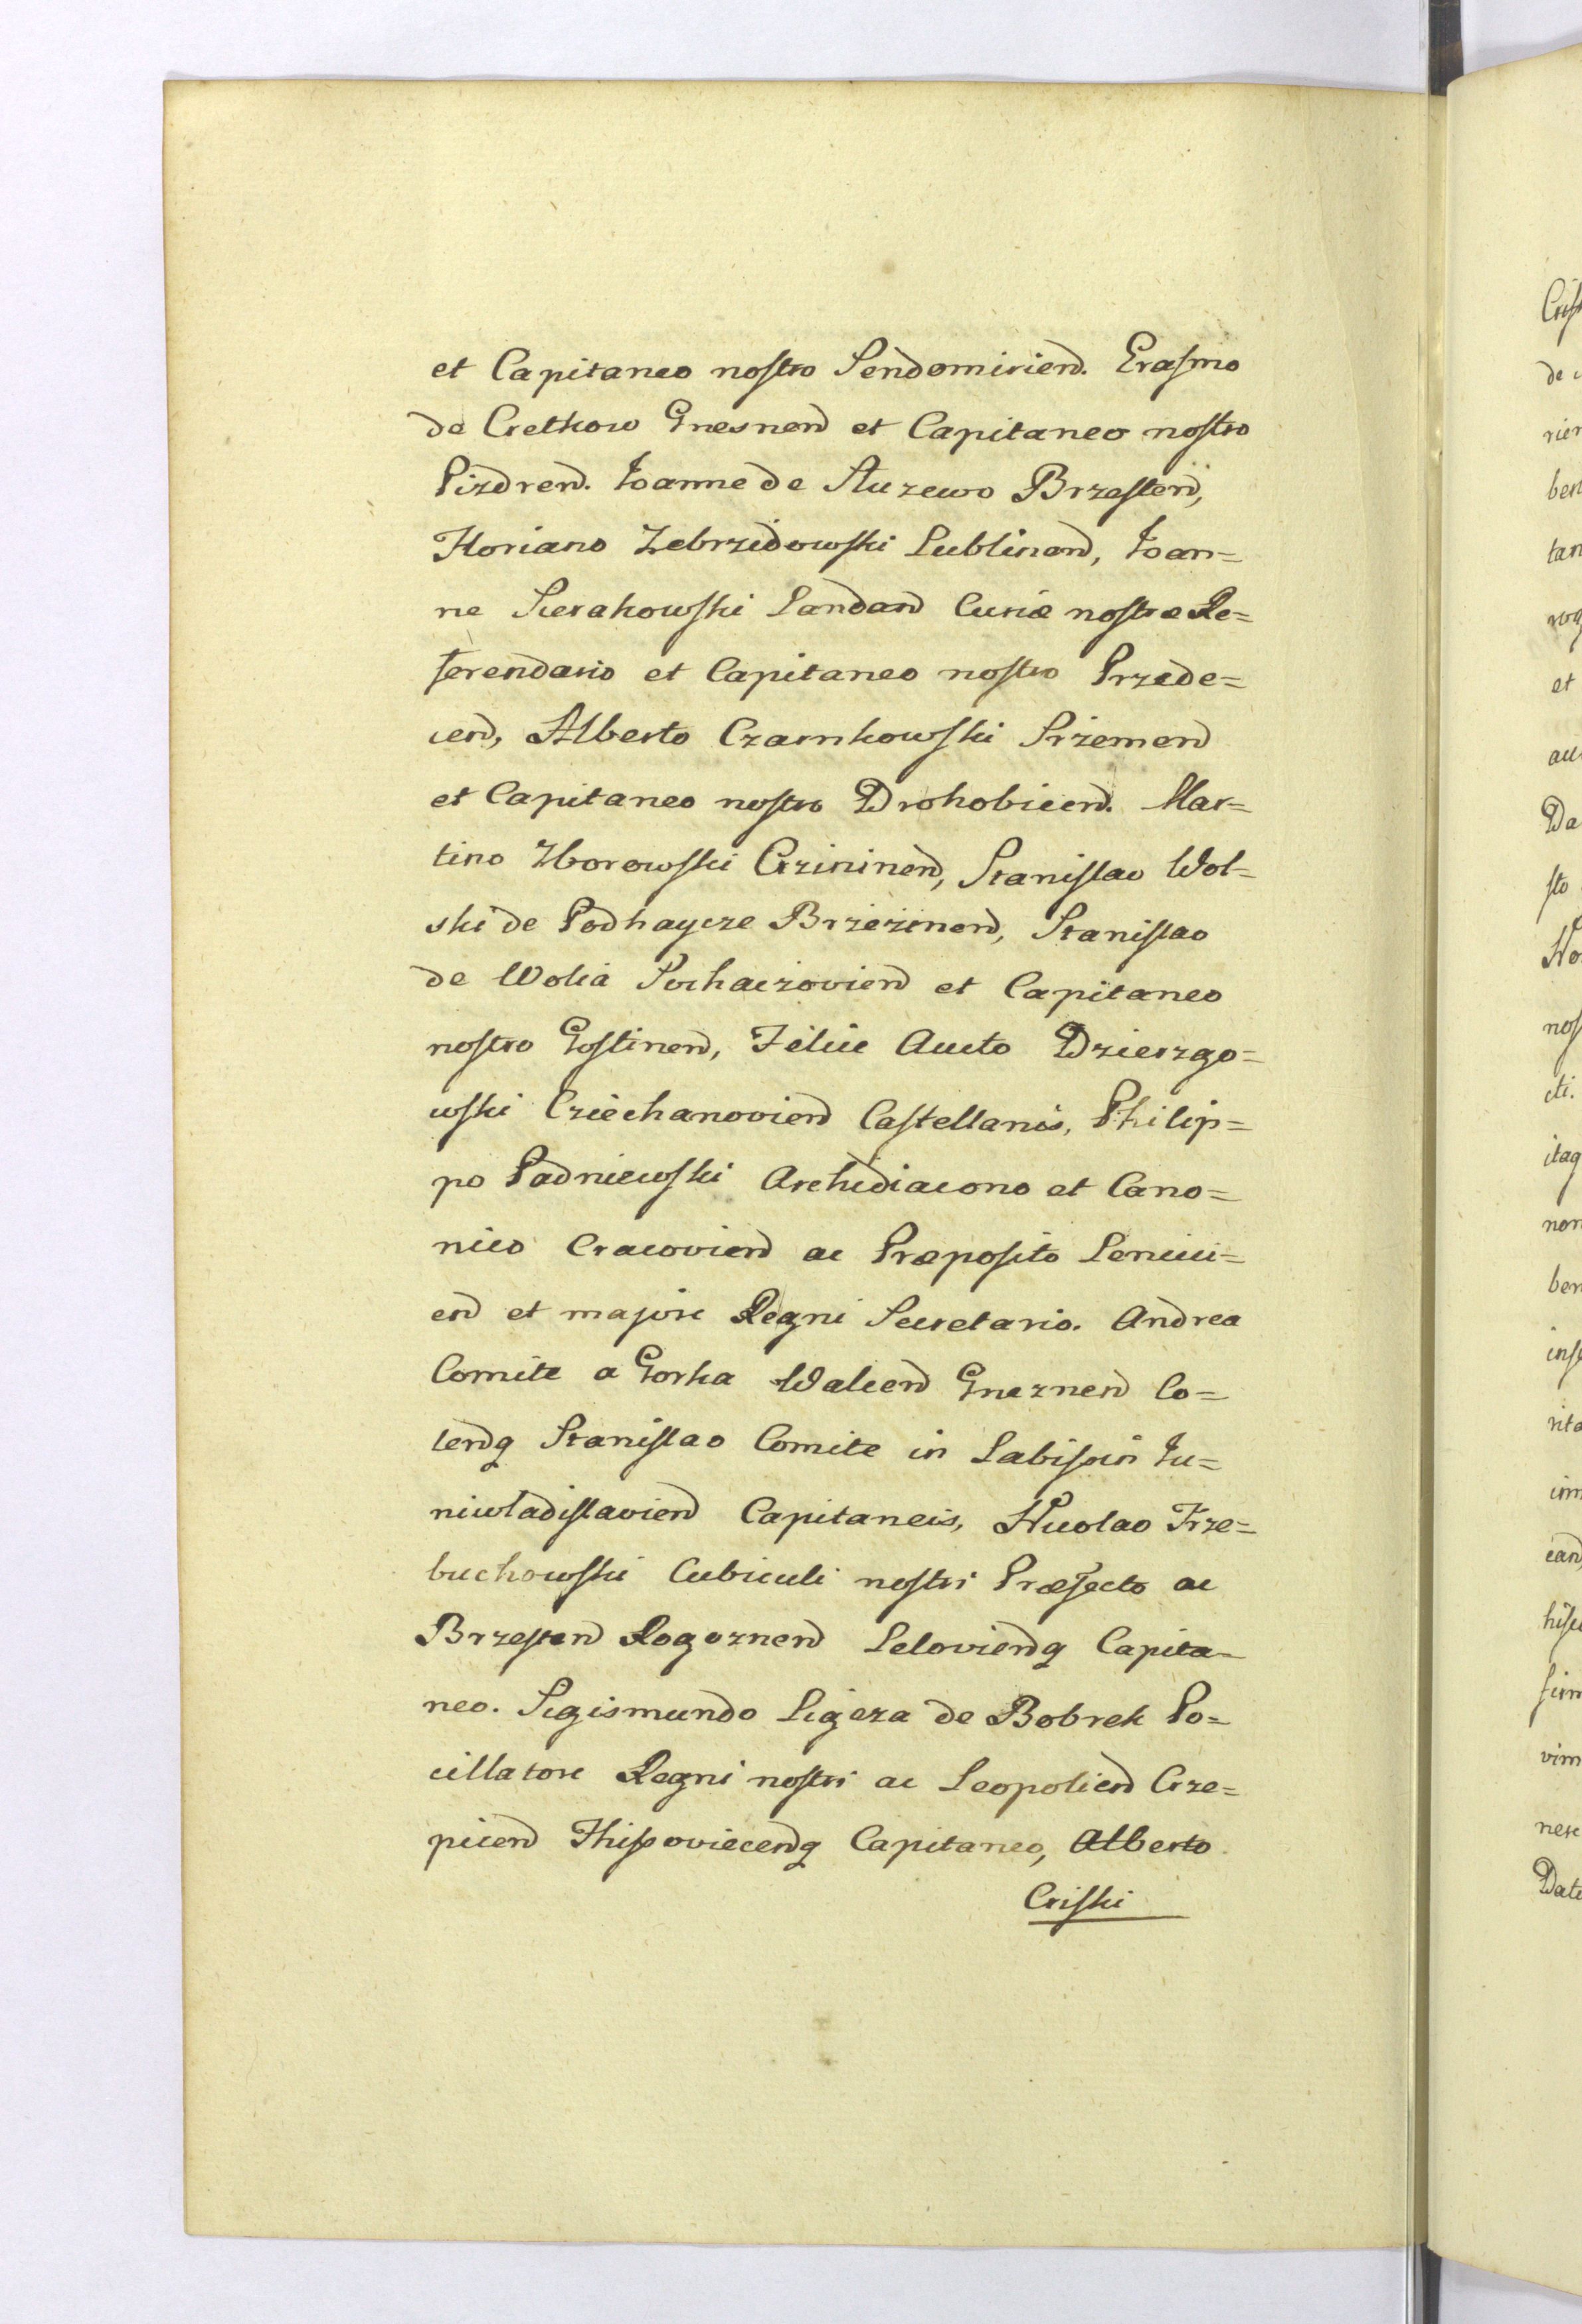 et Capitaneo nostro Sendomirien̄. Erasmo
de Cretkow Gnesnen̄ et Capitaneo nostro
Pizdren̄. Ioanne de Auzewo Brzesten̄,
Floriano Zebrzidowski Lublinen̄, Ioan=
ne Sierakowski Landan̄ Curiæ nostræ Re=
ferendario et Capitaneo nostro Przede=
cen̄, Alberto Czarnkowski Srzemen̄
et Capitaneo nostro Drohobicen̄. Mar=
tino Zborowski Crzininen̄, Stanislao Wol=
ski de Podhaycze Brzezinen̄, Stanislao
de Wolia Sochaczovien̄ et Capitaneo
nostro Gostinen̄, Felice Aucto Dzierzgo=
wski Cziechanovien̄ Castellanis, Philip=
po Padniewski Archidiacono et Cano=
nico Cracovien̄ ac Præposito Lencici=
en̄ et majore Regni Secretario. Andrea
Comite a Gorka Walcen̄ Gneznen̄ Co=
lenq̄ Stanislao Comite in Labischin Iu=
niwladislavien̄ Capitaneis, Nicolao Trze=
buchowski Cubiculi nostri Præfecto ac
Brzesten̄ Rogoznen̄ Lelovienq̄ Capita=
neo. Sigismundo Ligeza de Bobrek Po=
cillatore Regni nostri ac Leopolien̄ Crze=
picen̄ Thisoviecenq̄ Capitaneo, Alberto
Criski
Crisk
de
rien
ben
tan
rog
et
au
Da
sto
No
nos
cti.
itaq
non
ben
inse
rita
im
ean
hisc
sim
vim
nere
Date